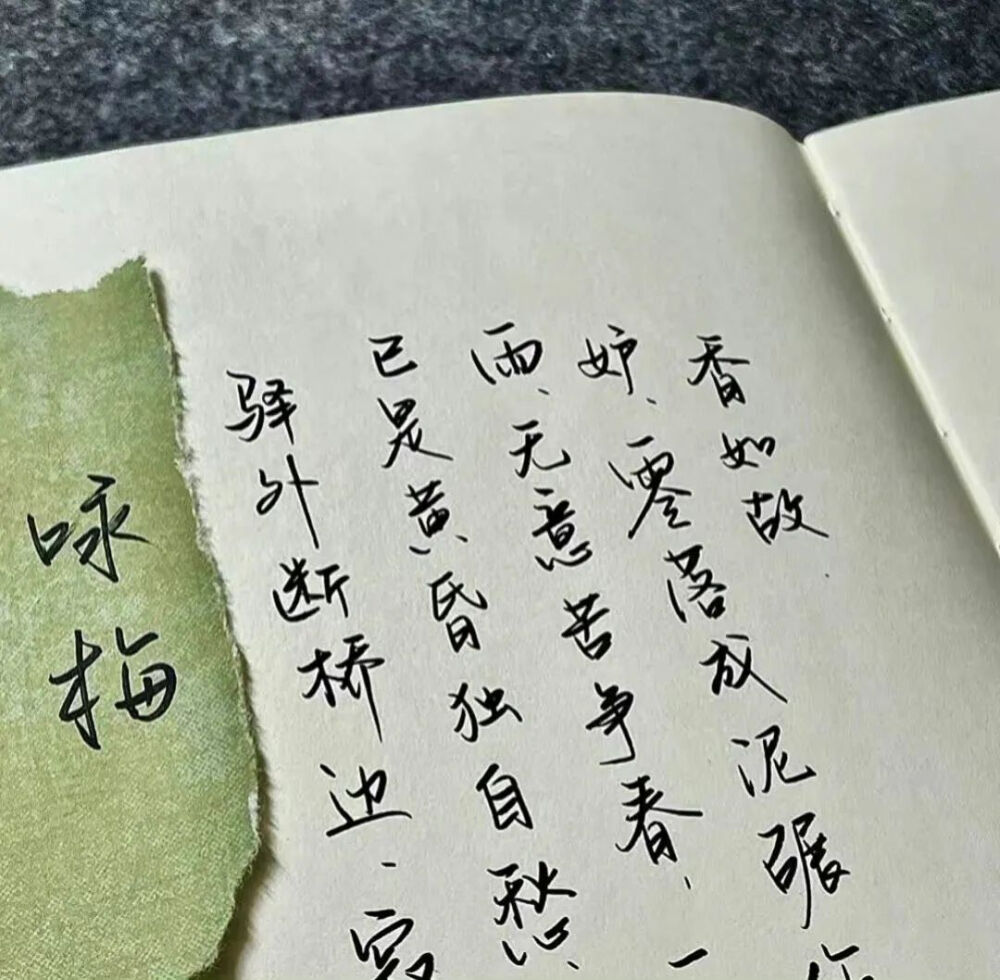 咏梅
驿外断桥边、寂
已是黄昏独自愁、
雨、无意苦争春、一
妒、零落成泥碾
香如故.